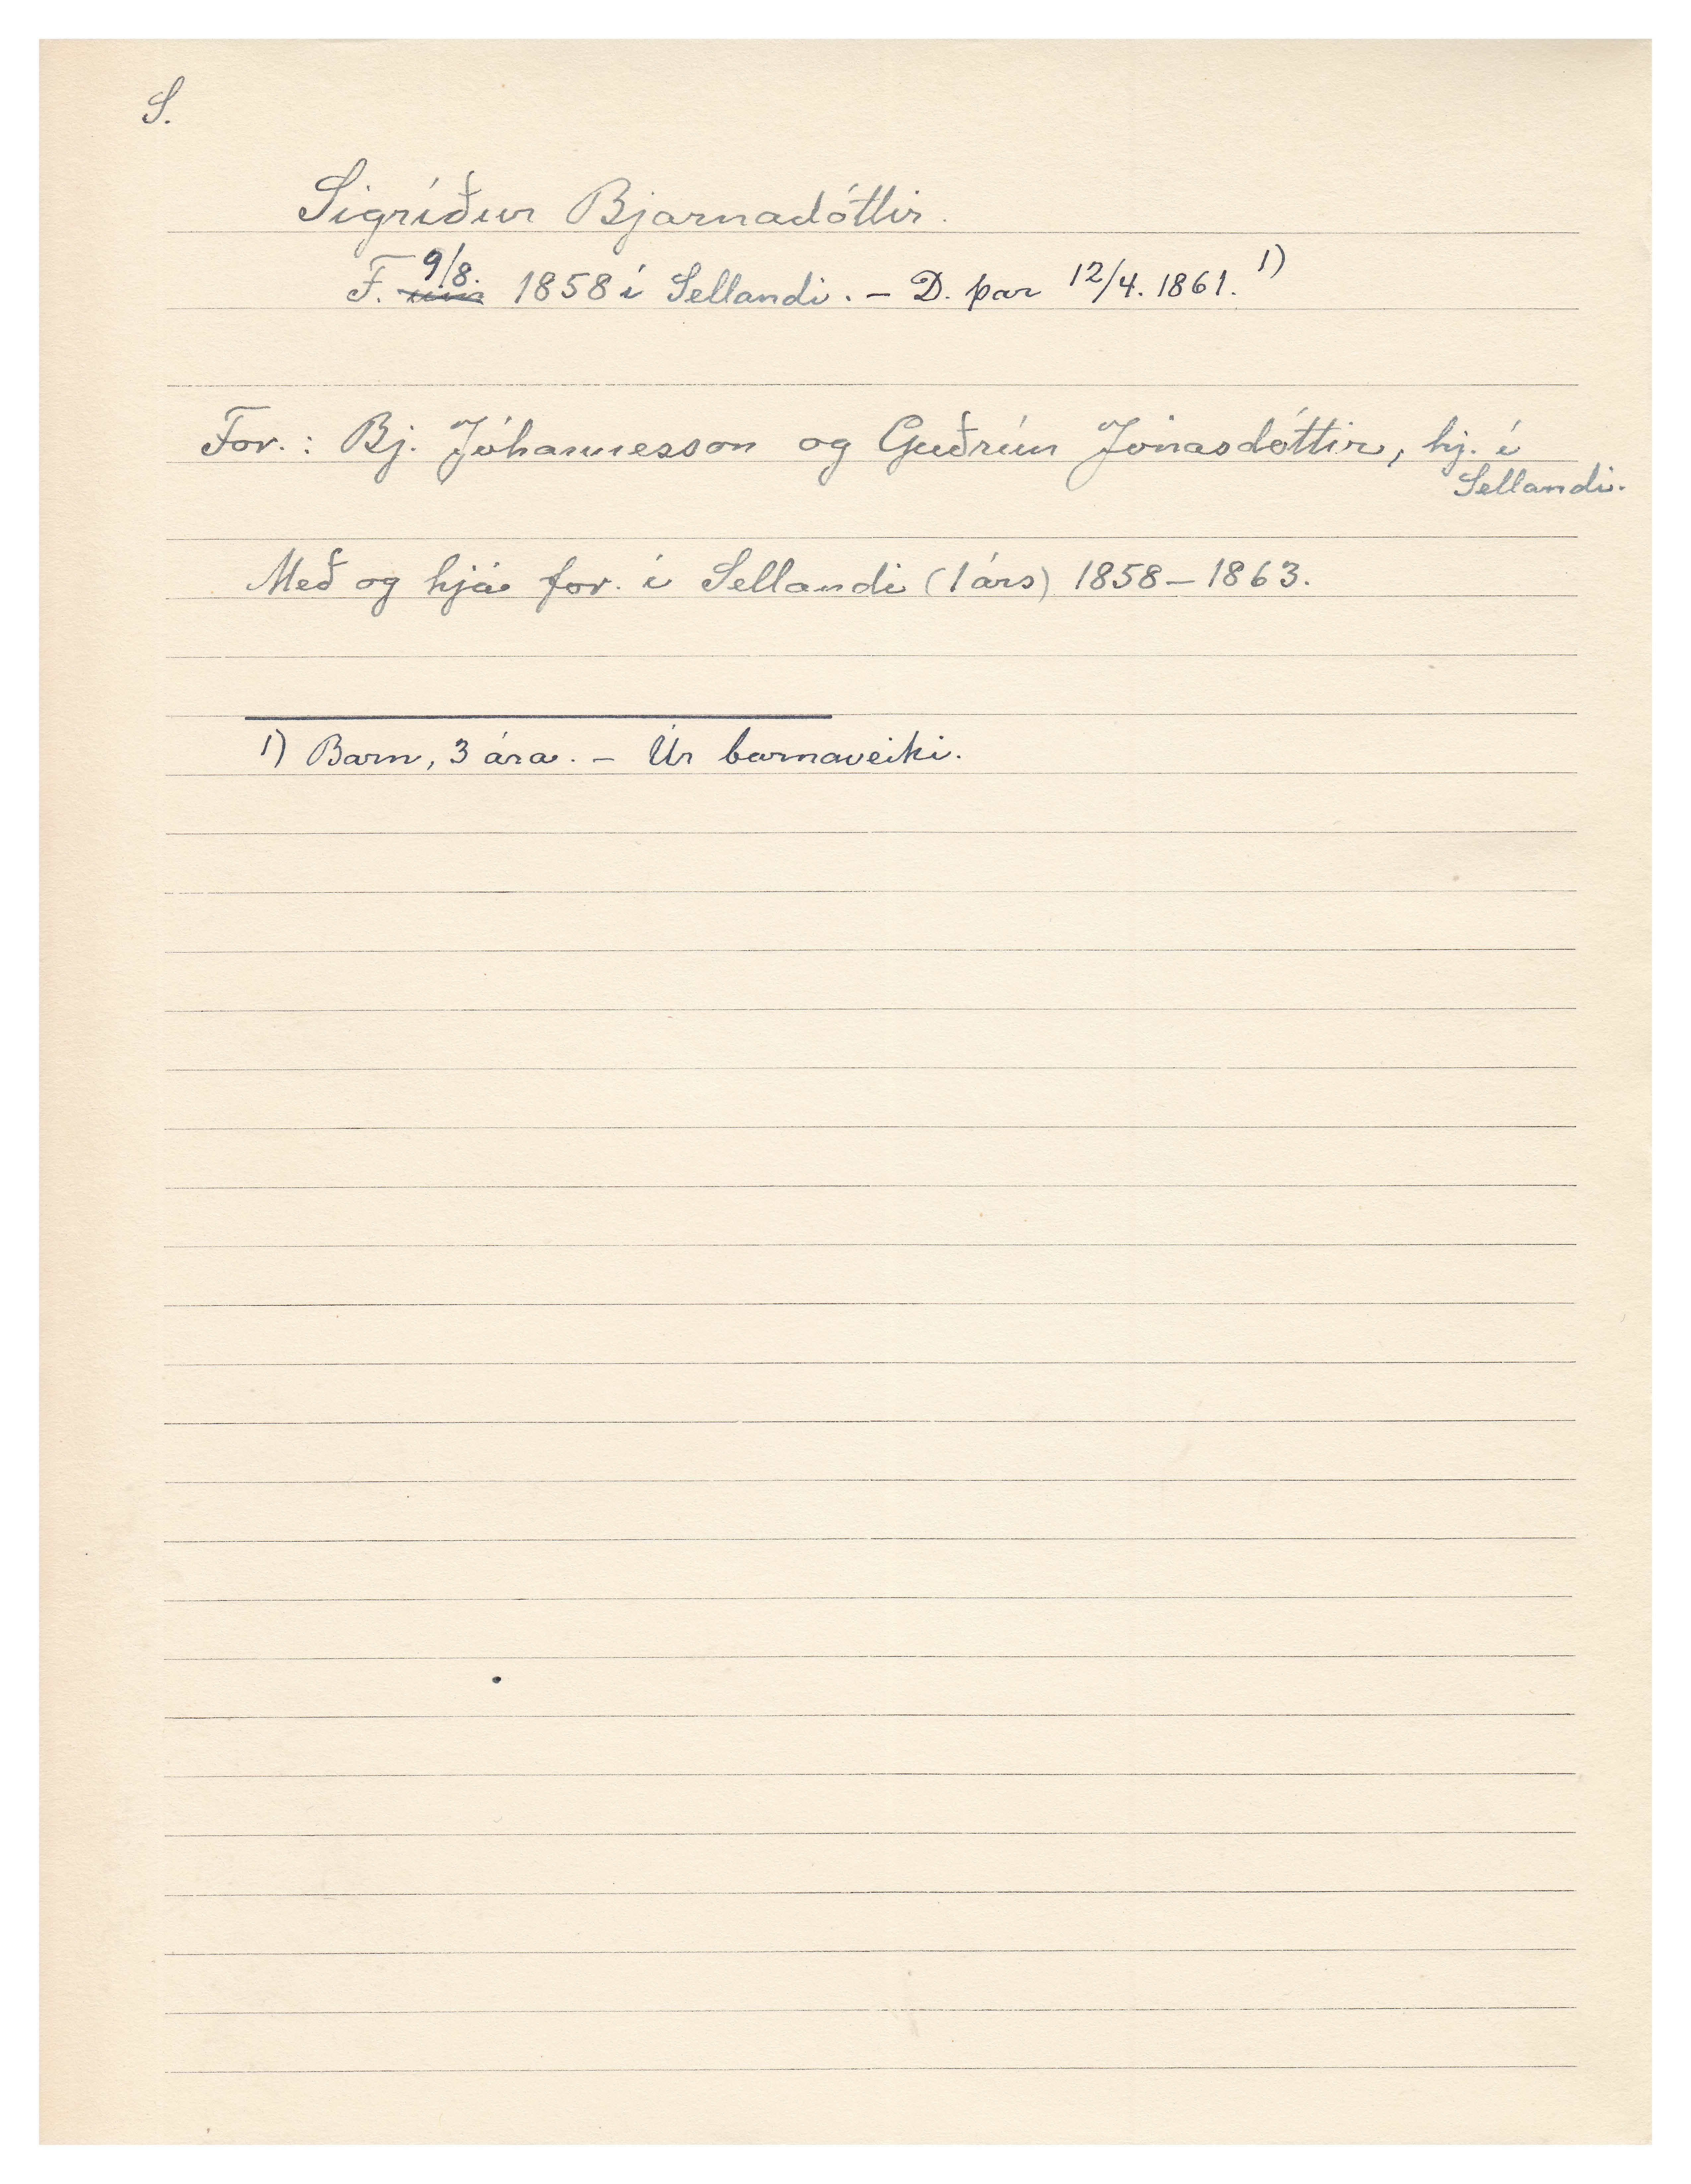 S.
Sigríður Bjarnadóttir.
F. 9/8. 1858 í Sellandi. – D. þar 12/4. 1861. 1)
For.: Bj. Jóhannesson og Guðrún Jónasdóttir, hj. í
Sellandi.
Með og hjá for. í Sellandi (1 árs) 1858–1863.
1) Barn, 3 ára. – Úr barnaveiki.